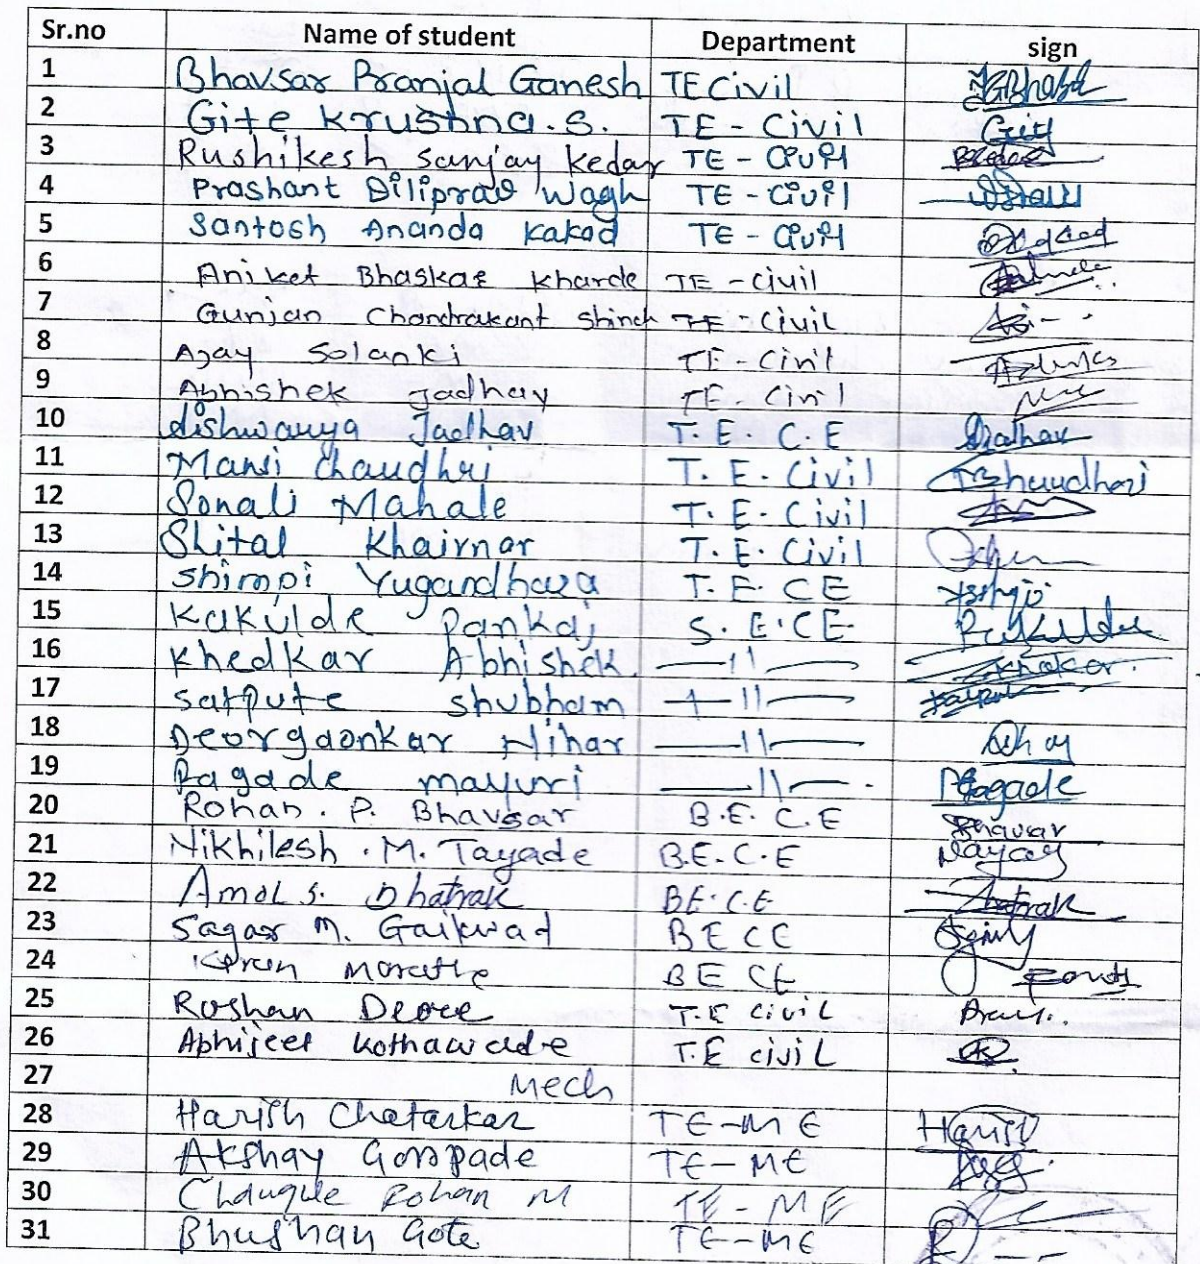 Sr.no Name of student Department sign
1 Bhavsar Pranjal Ganesh TE Civil
2 Gite Krushna. S. TE - Civil Gite
3 Rushikesh Sanjay Kedar TE - Civil
4 Prashant Diliprao Wagh TE - Civil
5 Santosh Ananda Kakad TE - Civil
6 Aniket Bhaskar Kharde TE - Civil
7 Gunjan Chandrakant Shinde TE - Civil
8 Ajay Solanki TE - Civil
9 Abhishek Jadhav TE - Civil
10 Aishwarya Jadhav T. E. C. E Jadhav
11 Mansi Chaudhri T. E. Civil
12 Sonali Mahale T. E. Civil
13 Shital Khairnar T. E. Civil
14 Shimpi Yugandhara T. E. CE
15 Kakulde Pankaj S. E. CE.
16 Khedkar Abhishek. —11—
17 Satpute Shubham —11—
18 Deorgaonkar Nihar —11—
19 Pagade mayuri —11— Pagade
20 Rohan. P. Bhavsar B.E. C.E Bhavsar
21 Nikhilesh .M. Tayade B.E.C.E
22 Amol S. Dhatrak BE.C.E Dhatrak
23 Sagar M. Gaikwad BE CE
24 Kiran Marathe BE CE
25 Roshan Deore T.E Civil
26 Abhijeet Kothawade T.E civil
27 Mech
28 Harish Chatarkar TE-ME Harish
29 Akshay Gorpade TE-ME
30 Chaugule Rohan M TE-ME
31 Bhushan Gote TE-ME